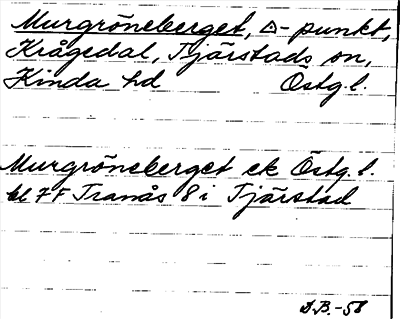 Murgröneberget, △-punkt,
Krågedal, Tjärstads sn,
Kinda hd Östg. l.
Murgröneberget ek Östg. l.
bl 7F Tranås 8 i Tjärstad
S.B. -58